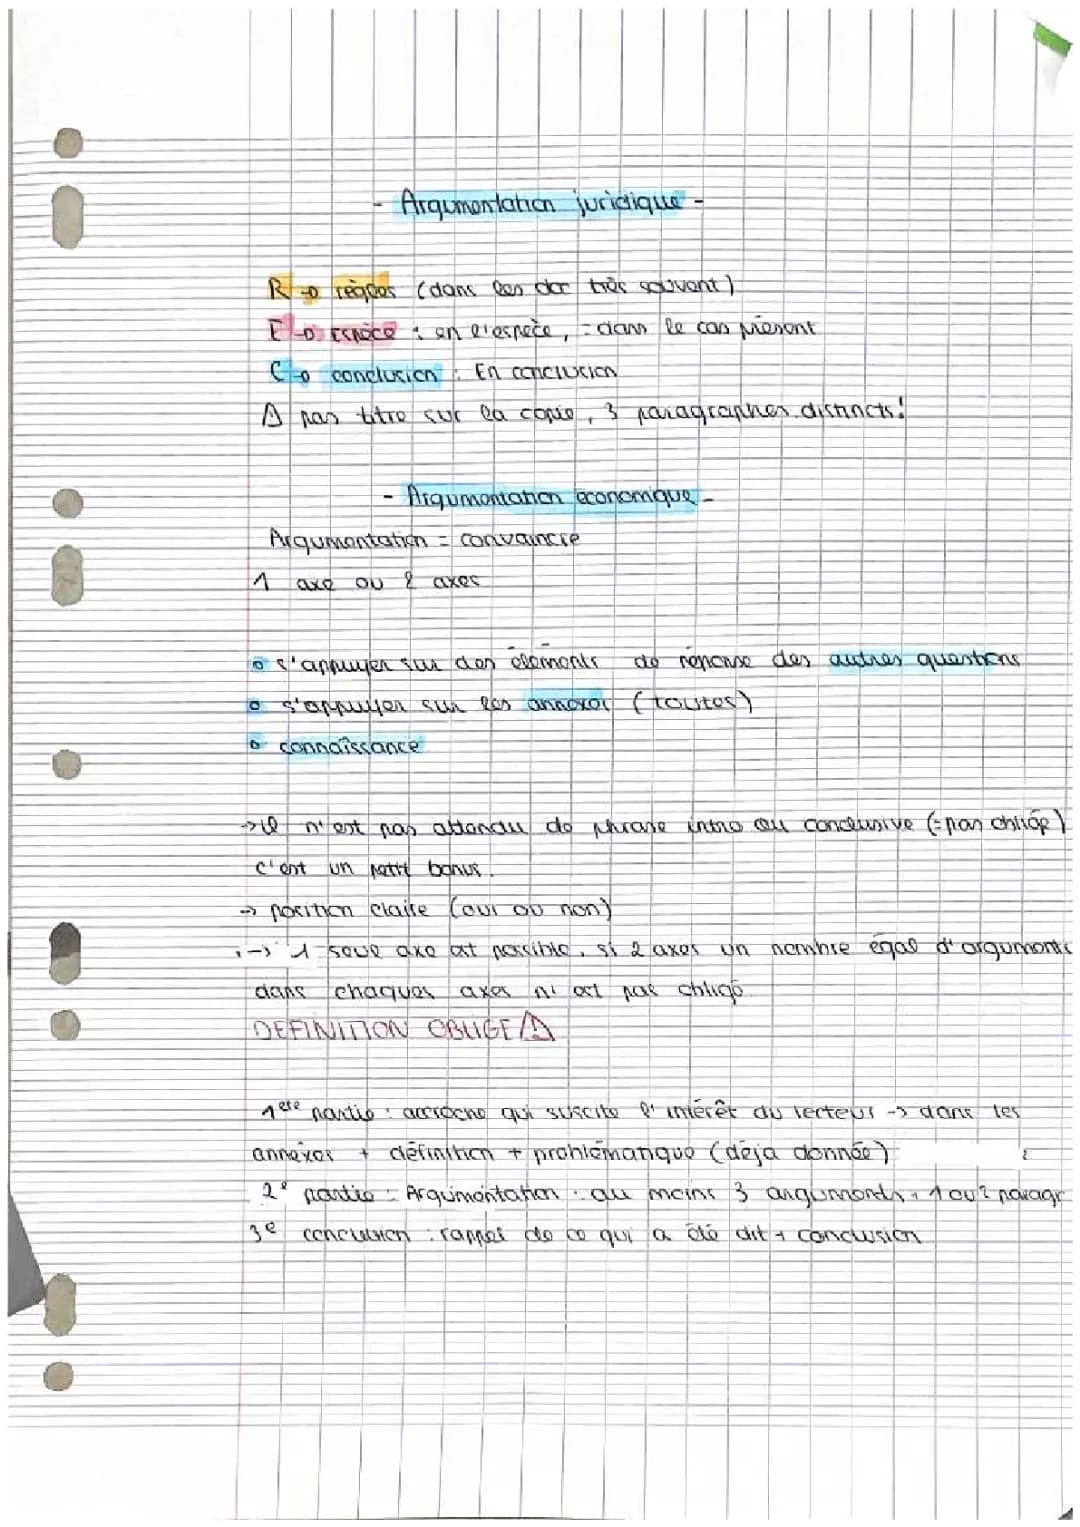 - Argumentation juridique -
R → règles (dans les doc très souvent)
E → espèce : en l'espèce, = dans le cas présent
C → conclusion : En conclusion
⚠ pas titre sur la copie, 3 paragraphes distincts!
- Argumentation économique -
Argumentation = convaincre
1 axe ou 2 axes
o s'appuyer sur des éléments de réponse des autres questions
o s'appuyer sur les annexes (toutes)
o connaissance
→ il n'est pas attendu de phrase intro ou conclusive (= pas obligé)
c'est un petit bonus.
→ position claire (oui ou non)
→ 1 seul axe est possible, si 2 axes un nombre égal d'arguments
dans chaques axes n'est pas obligé.
DEFINITION OBLIGE ⚠
1ère partie : accroche qui suscite l'intérêt du lecteur → dans les
annexes + définition + problématique (déja donnée)
2e partie : Argumentation : au moins 3 arguments, 1 ou 2 paragr
3e conclusion : rappel de ce qui a été dit + conclusion